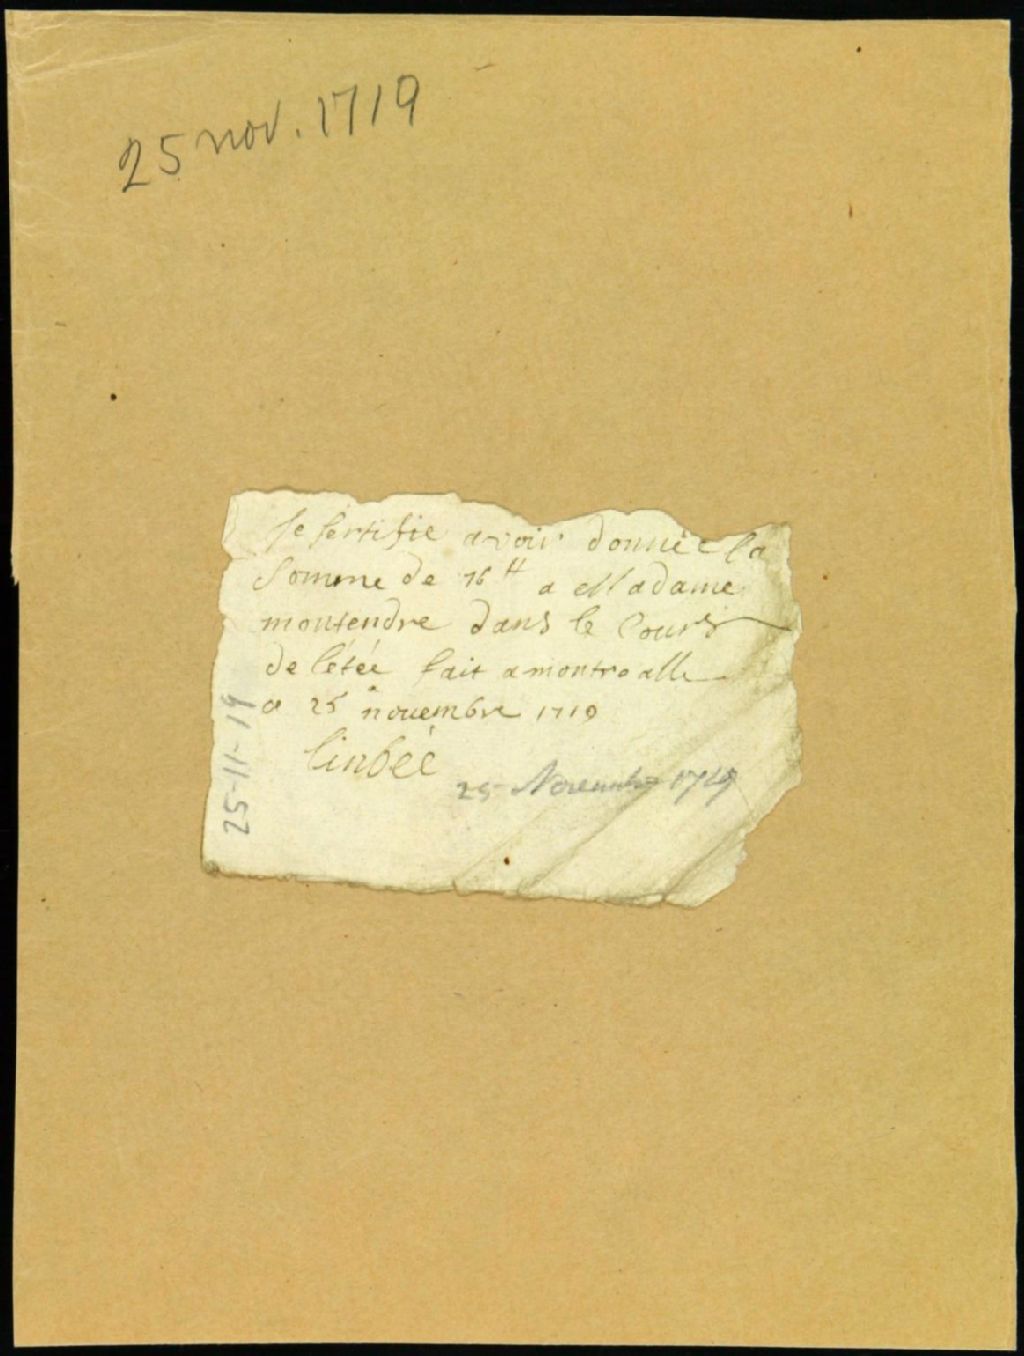 25 nov. 1719
Je sertifie avoir donnée la
somme de 16# a Madame
montendre dans le Cours
de létée fait a montroalle
a 25 nouembre 1719
25 Novembre 1719
25-11-19